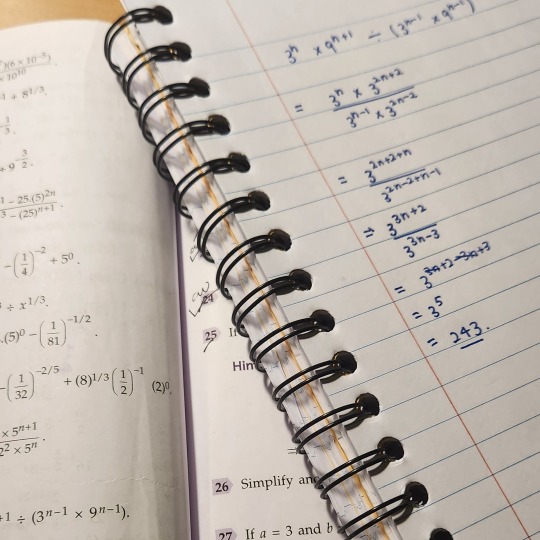 )(6 × 10⁻²)
× 10¹⁰
+ 8^{1/3}.
1/3.
+ 9^{-3/2}.
1 − 25.(5)^{2n}
3 − (25)^{n+1}.
−(1/4)^{−2} + 5⁰.
÷ x^{1/3}.
.(5)⁰ − (1/81)^{−1/2}.
−(1/32)^{−2/5} + (8)^{1/3} (1/2)^{−1} (2)⁰.
× 5^{n+1}
2² × 5ⁿ.
+1 ÷ (3^{n−1} × 9^{n−1}).
24
25 If
Hin
26 Simplify an
27 If a = 3 and b
3ⁿ × 9^{n+1} ÷ (3^{n−1} × 9^{n−1})
= 3ⁿ × 3^{2n+2}
3^{n−1} × 3^{2n−2}
= 3^{2n+2+n}
3^{2n−2+n−1}
⇒ 3^{3n+2}
3^{3n−3}
= 3^{3n+2−3n+3}
= 3⁵
= 243.